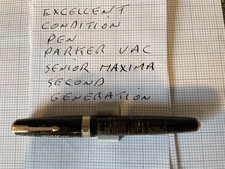 EXCELLENT
CONDITION
PEN
PARKER VAC
SENIOR MAXIMA
SECOND
GENERATION